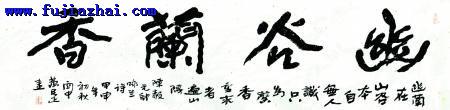 www.fujiazhai.com
幽谷蘭香
幽蘭
在山谷
本自
無人
識
只為
馨香
重求
者
遍山
隅
陳毅
元帥
詠蘭
詩